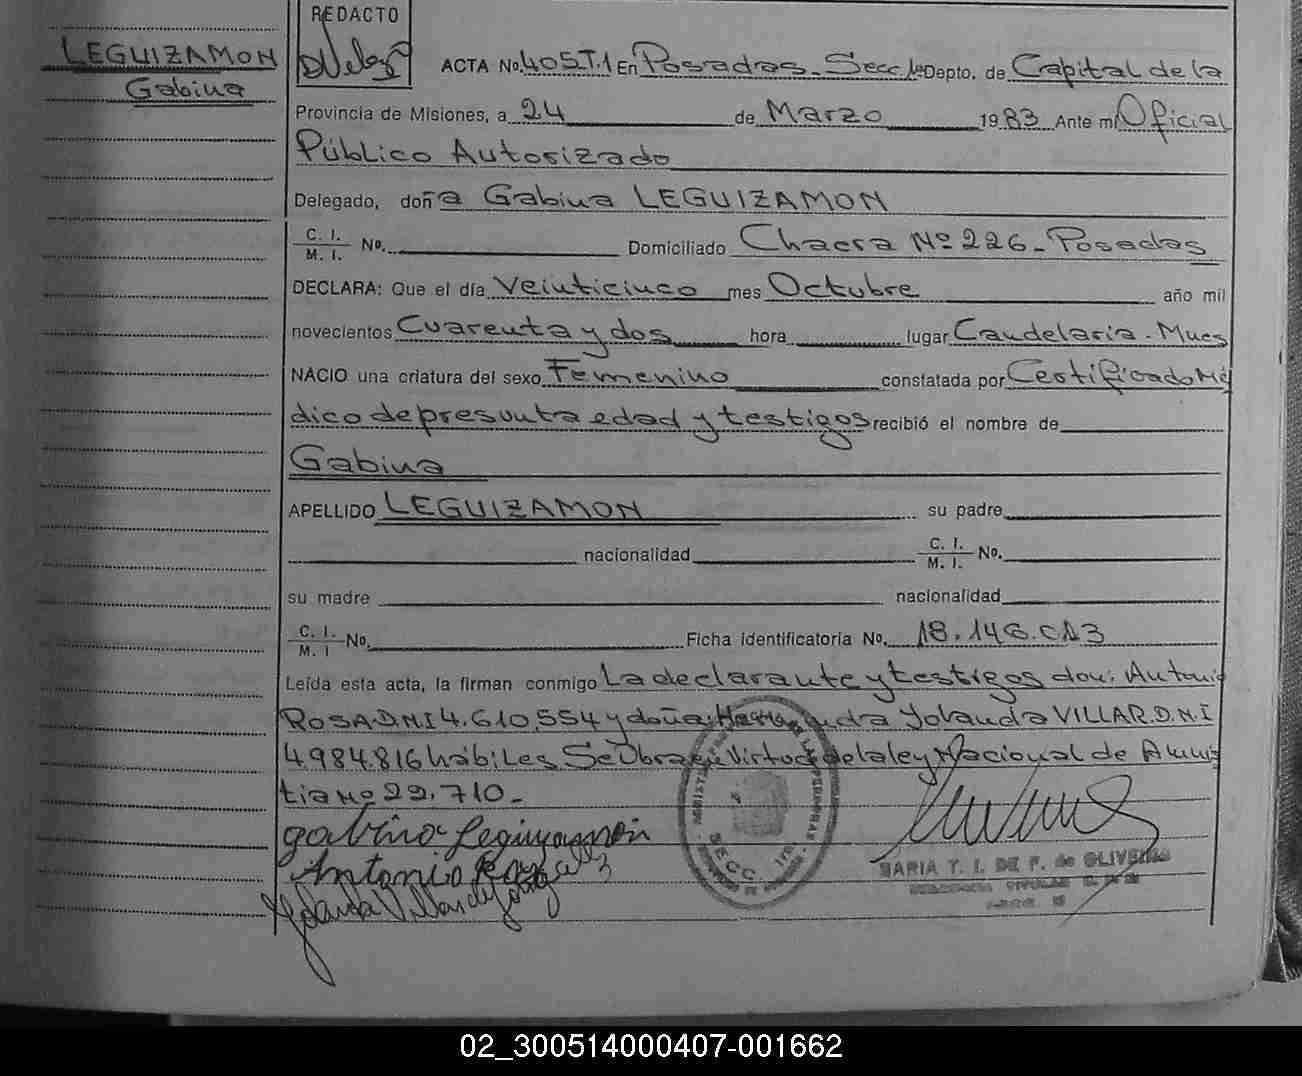 REDACTO
LEGUIZAMON
Gabina
ACTA No. 405T.1 En Posadas. Secc. 1a Depto. de Capital de la
Provincia de Misiones, a 24 de Marzo 1983 Ante mi Oficial
Público Autorizado
Delegado, doña Gabina LEGUIZAMON
C. I. M. I. No. Domiciliado Chacra Nº 226 - Posadas
DECLARA: Que el día Veinticinco mes Octubre año mil
novecientos Cuarenta y dos hora lugar Candelaria. Mnes
NACIO una criatura del sexo Femenino constatada por Certificado Mé
dico de presunta edad y testigos recibió el nombre de
Gabina
APELLIDO LEGUIZAMON su padre
nacionalidad C. I. M. I. No.
su madre nacionalidad
C. I. M. I No. Ficha Identificatoria No. 18.146.013
Leída esta acta, la firman conmigo La declarante y testigos don: Antonio
ROSA.D.N.I 4.610.554 y doña: Yolanda VILLAR.D.N.I
4984.816 hábiles Se Obra en Virtud de la ley Nacional de Amnis
tia Nº 22.710.-
gabina Leguizamon
Antonio Rosa
Yolanda Villar de
SECC. 1ra
MARIA T. I. DE F. de OLIVEIRA
02_300514000407-001662